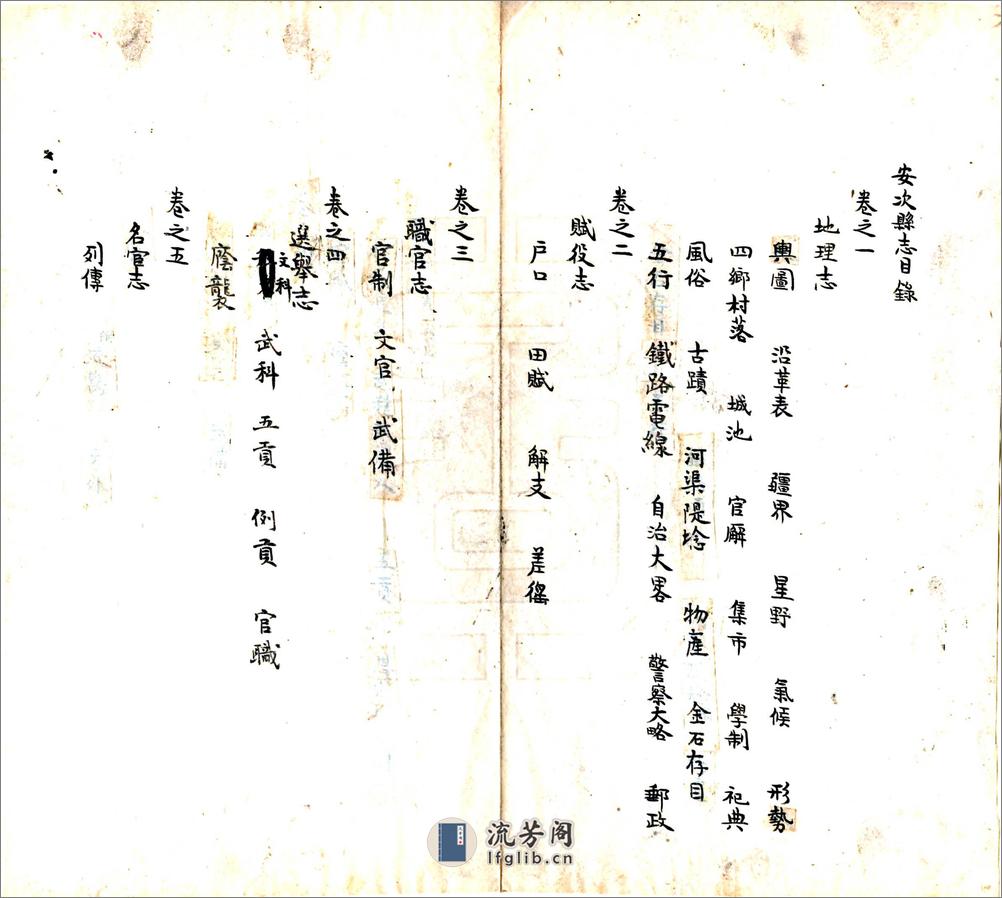 安次縣志目錄
卷之一
地理志
輿圖 沿革表 疆界 星野 氣候 形勢
四鄉村落 城池 官廨 集市 學制 祀典
風俗 古蹟 河渠隄埝 物產 金石存目
五行 鐵路電線 自治大畧 警察大略 郵政
卷之二
賦役志
戶口 田賦 解支 差徭
卷之三
職官志
官制 文官 武備
卷之四
選舉志
文科 武科 五貢 例貢 官職
廕襲
卷之五
名宦志
列傳
流芳阁
lfglib.cn